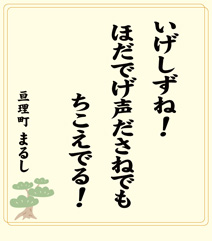 いげしずね！
ほだでげ声ださねでも
ちこえでる！
亘理町 まるし